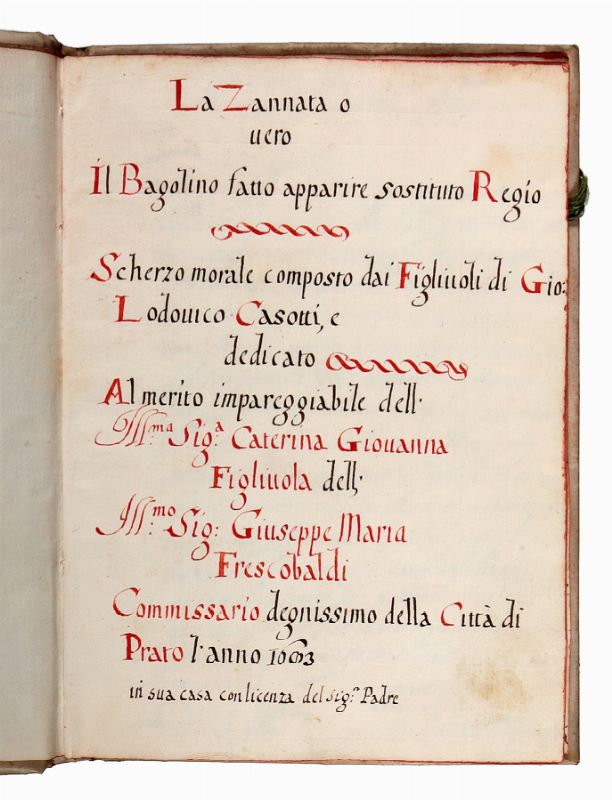 La Zannata o
uero
Il Bagolino fatto apparire sostituto Regio
Scherzo morale composto dai Figliuoli di Gio:
Lodouico Casotti, e
dedicato
Al merito impareggiabile dell'
Ill.ma Sig.a Caterina Giouanna
Figliuola dell'
Ill.mo Sig: Giuseppe Maria
Frescobaldi
Commissario degnissimo della Città di
Prato l'anno 1663
in sua casa con licenza del sig.r Padre